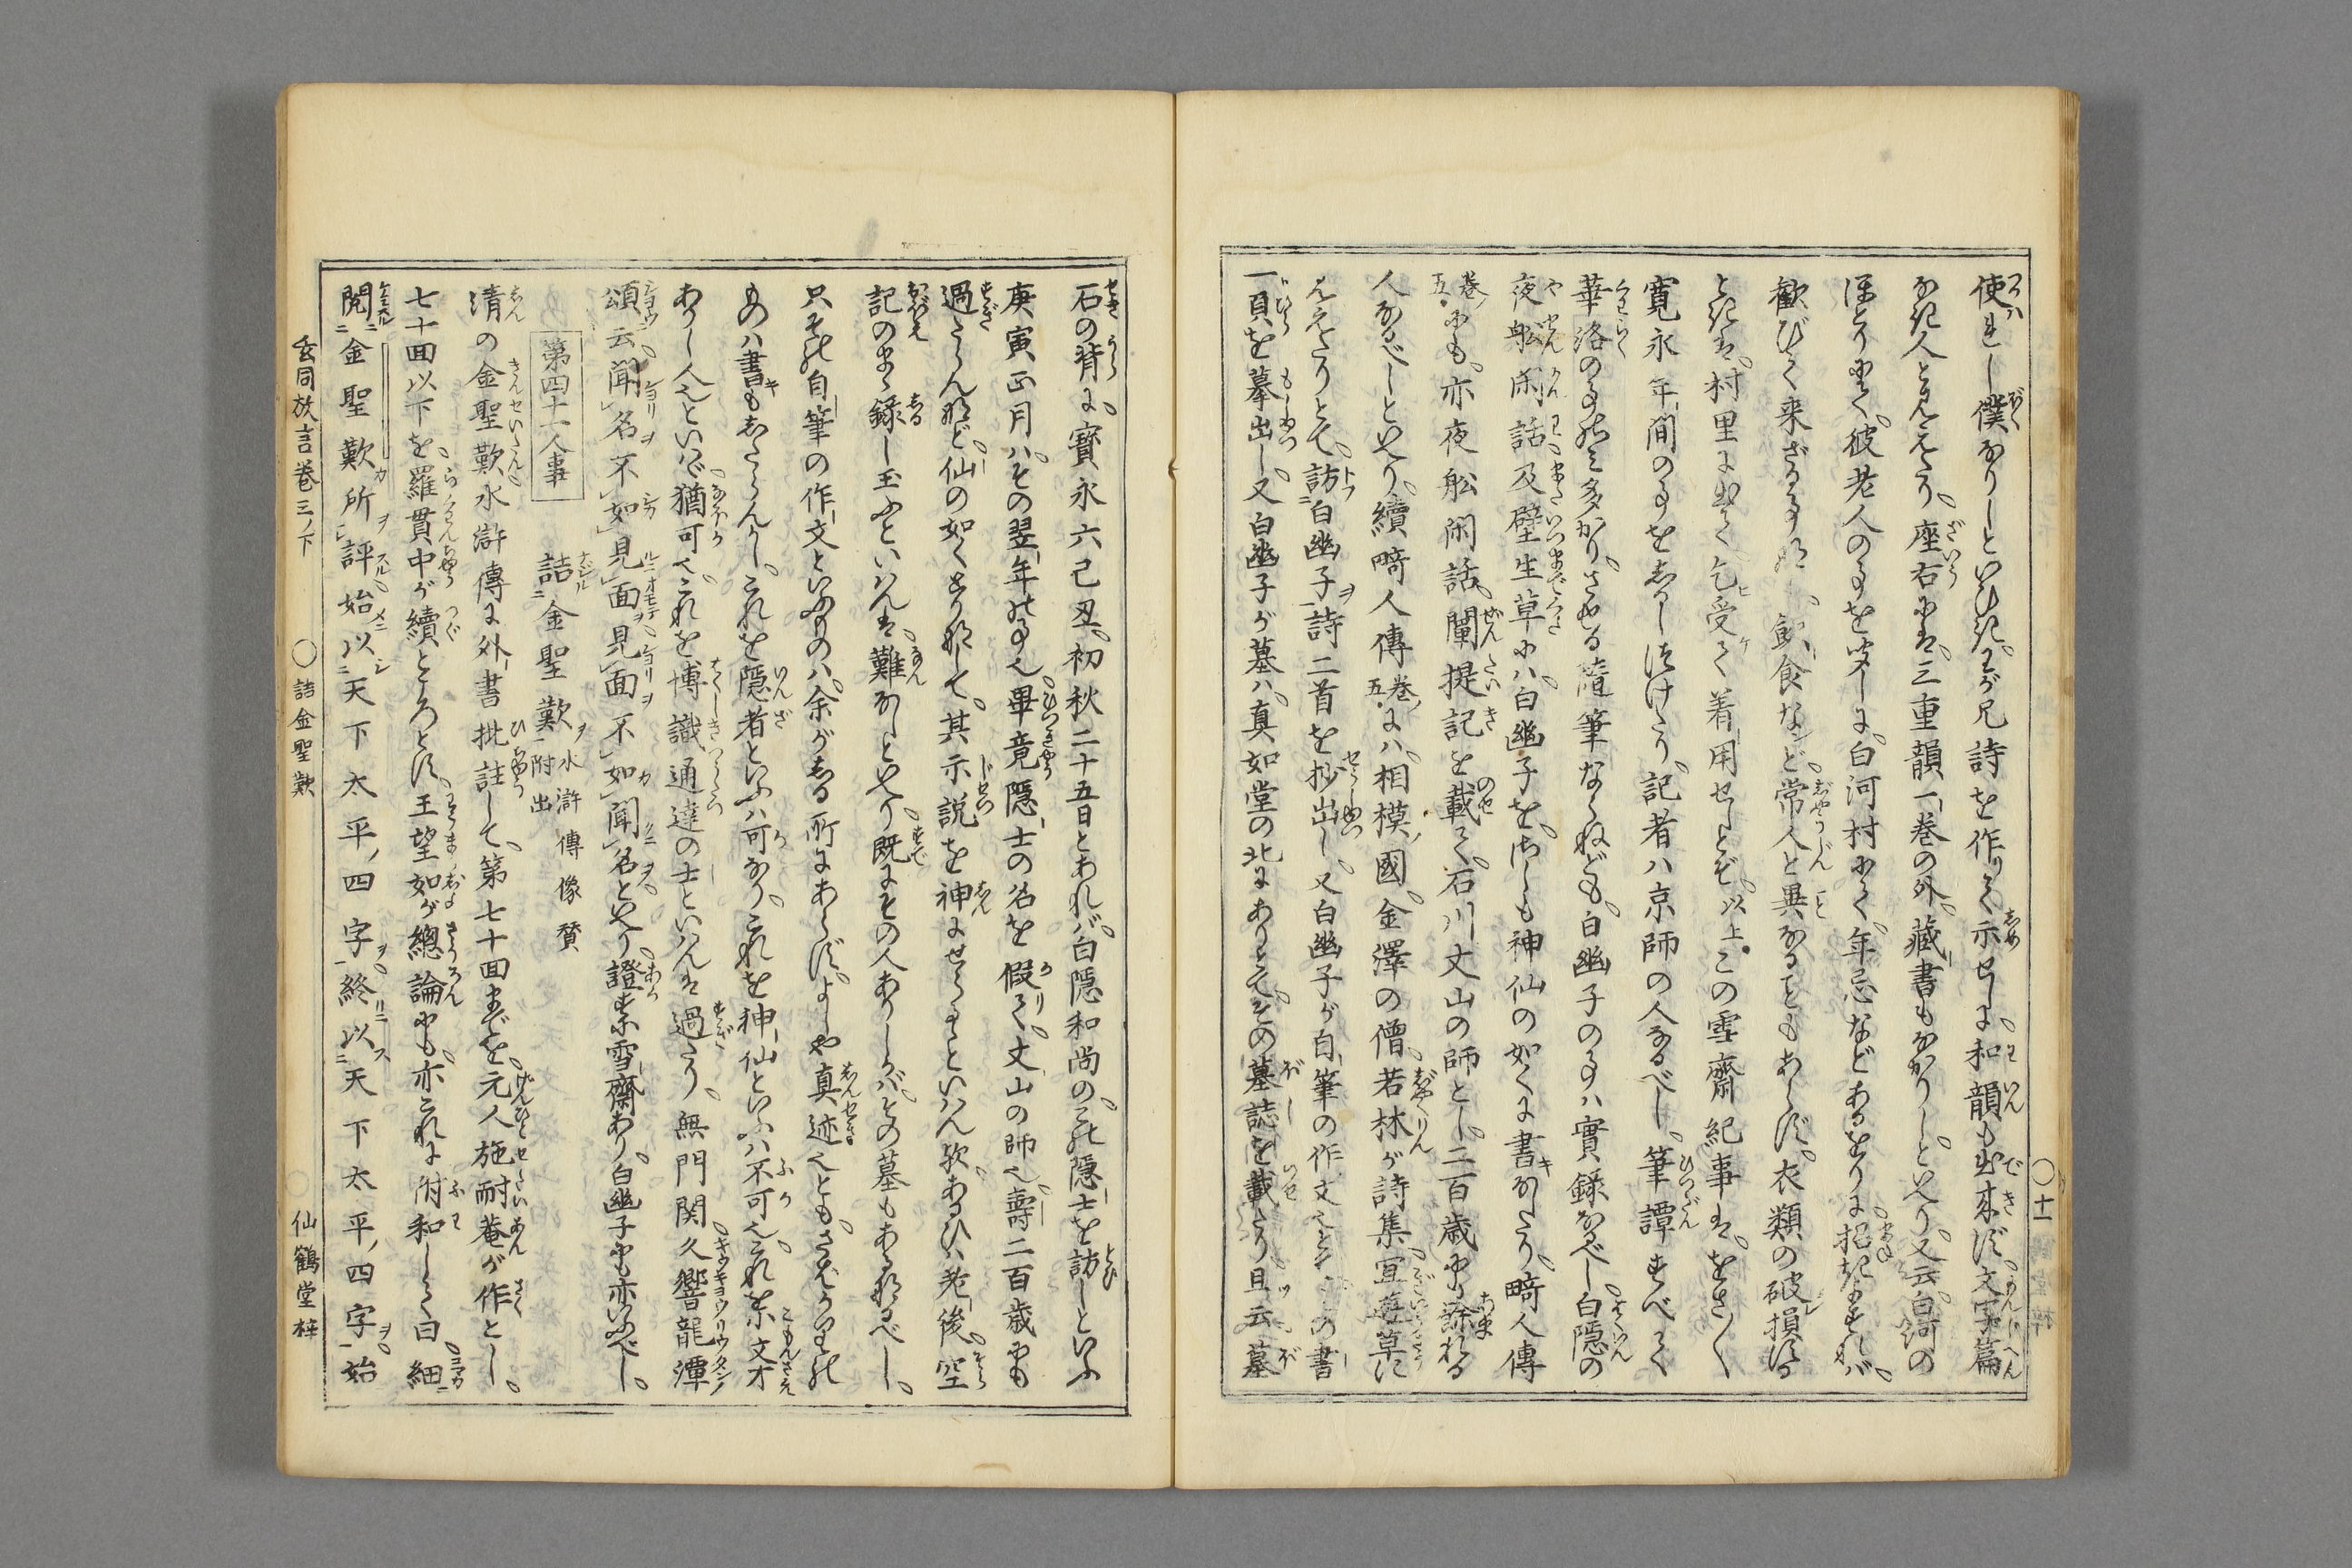 使れし僕なりしといひ伝ふ、わが兄詩を作りて示せしに、和韻も出来ず、文字篇
なき人と見えたり、座右には、三重韻一巻の外、藏書もなかりしといへり、又云白河の
ほとりにて、彼老人の事を聞しに、白河村にて、年忌などあるをりに招きぬれば、
歓びて来ざる事なし、飲食なンど、常人と異なることもあらず、衣類の破損する
ときは、村里に出て乞受て着用せしとぞ、以上この雪齋紀事は、をさ〱
寛永年間の事をしるしつけたり、記者ハ京師の人なるべし、筆譚すべて
華洛の事のミ多かり、させる隨筆ならねども、白幽子の事ハ實録なるべし、白隠の
夜舩閑話及壁生草にハ、白幽子を、さしも神仙の如くに書なしたり、畸人傳
巻ノ五にも、亦夜舩閑話、闡提記を載て、石川丈山の師とし、二百歳に餘れる
人なるべしといへり、續畸人傳巻ノ五にハ、相模ノ國、金澤の僧、若林が詩集、宜遊草に
見えたりとて、訪白幽子詩二首を抄出し、又白幽子が自筆の作文の書
一頁を摹出し、又白幽子が墓ハ、真如堂の北にありとて、その墓誌を載たり、且云墓
○十一
石の背に、寳永六己丑、初秋二十五日とあれバ、白隠和尚の、この隠士を訪しといふ
庚寅正月ハ、その翌年の事也、畢竟隠士の名を假て、丈山の師也、壽二百歳にも
過たらんなど、仙の如くとりなして、其示説を神にせらるゝといはん歟、あるひハ老後、空
記のまゝ録し玉ふといはんは、難なしといへり、既にその人ありしかバ、その墓もあるなるべし、
只その自筆の作文といふものハ、余がしる所にあらず、よしや真迹也とも、さばかりの
ものハ書もしたらんかし、これを隠者といふハ可なり、これを神仙といふハ不可也、これを亦文才
ありし人也といハヾ、猶可也、これを博識通達の士といはんは過たり、無門関久響龍潭ノ
頌云、聞名不如見面、見面不如聞名といへり、證すに亦雪齋あり、白幽子にも亦いふべし、
第四十一人事
詰金聖歎 水滸傳像賛附出
清の金聖歎、水滸傳に外書批註して、第七十回までを、元人施耐菴が作とし、
七十回以下を、羅貫中が續ところとす、王望如が總論にも、亦これに附和して曰、細
閲金聖歎所評、始以天下太平ノ四字、終以天下太平ノ四字、始
玄同放言巻三ノ下 ○詰金聖歎 仙鶴堂梓